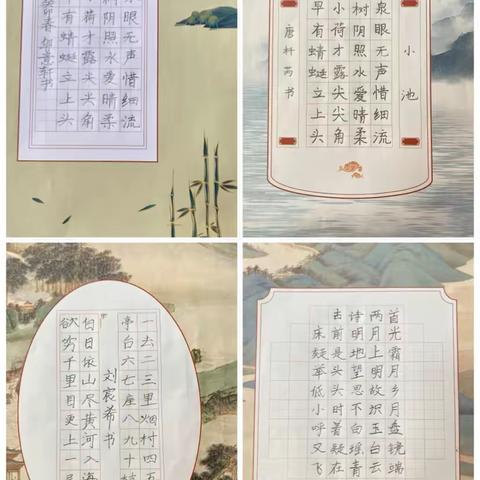 眼无声惜细流
阴照水爱晴柔
小荷才露尖尖角
有蜻蜓立上头
癸卯春
小池
泉眼无声惜细流
树阴照水爱晴柔
小荷才露尖尖角
早有蜻蜓立上头
唐 书
一去二三里烟村四五
亭台六七座八九十枝
刘宸希书
白日依山尽黄河入海
欲穷千里目更上一
古诗两首
床前明月光
疑是地上霜
举头望明月
低头思故乡
小时不识月
呼着白玉盘
又疑瑶台镜
飞在青云端